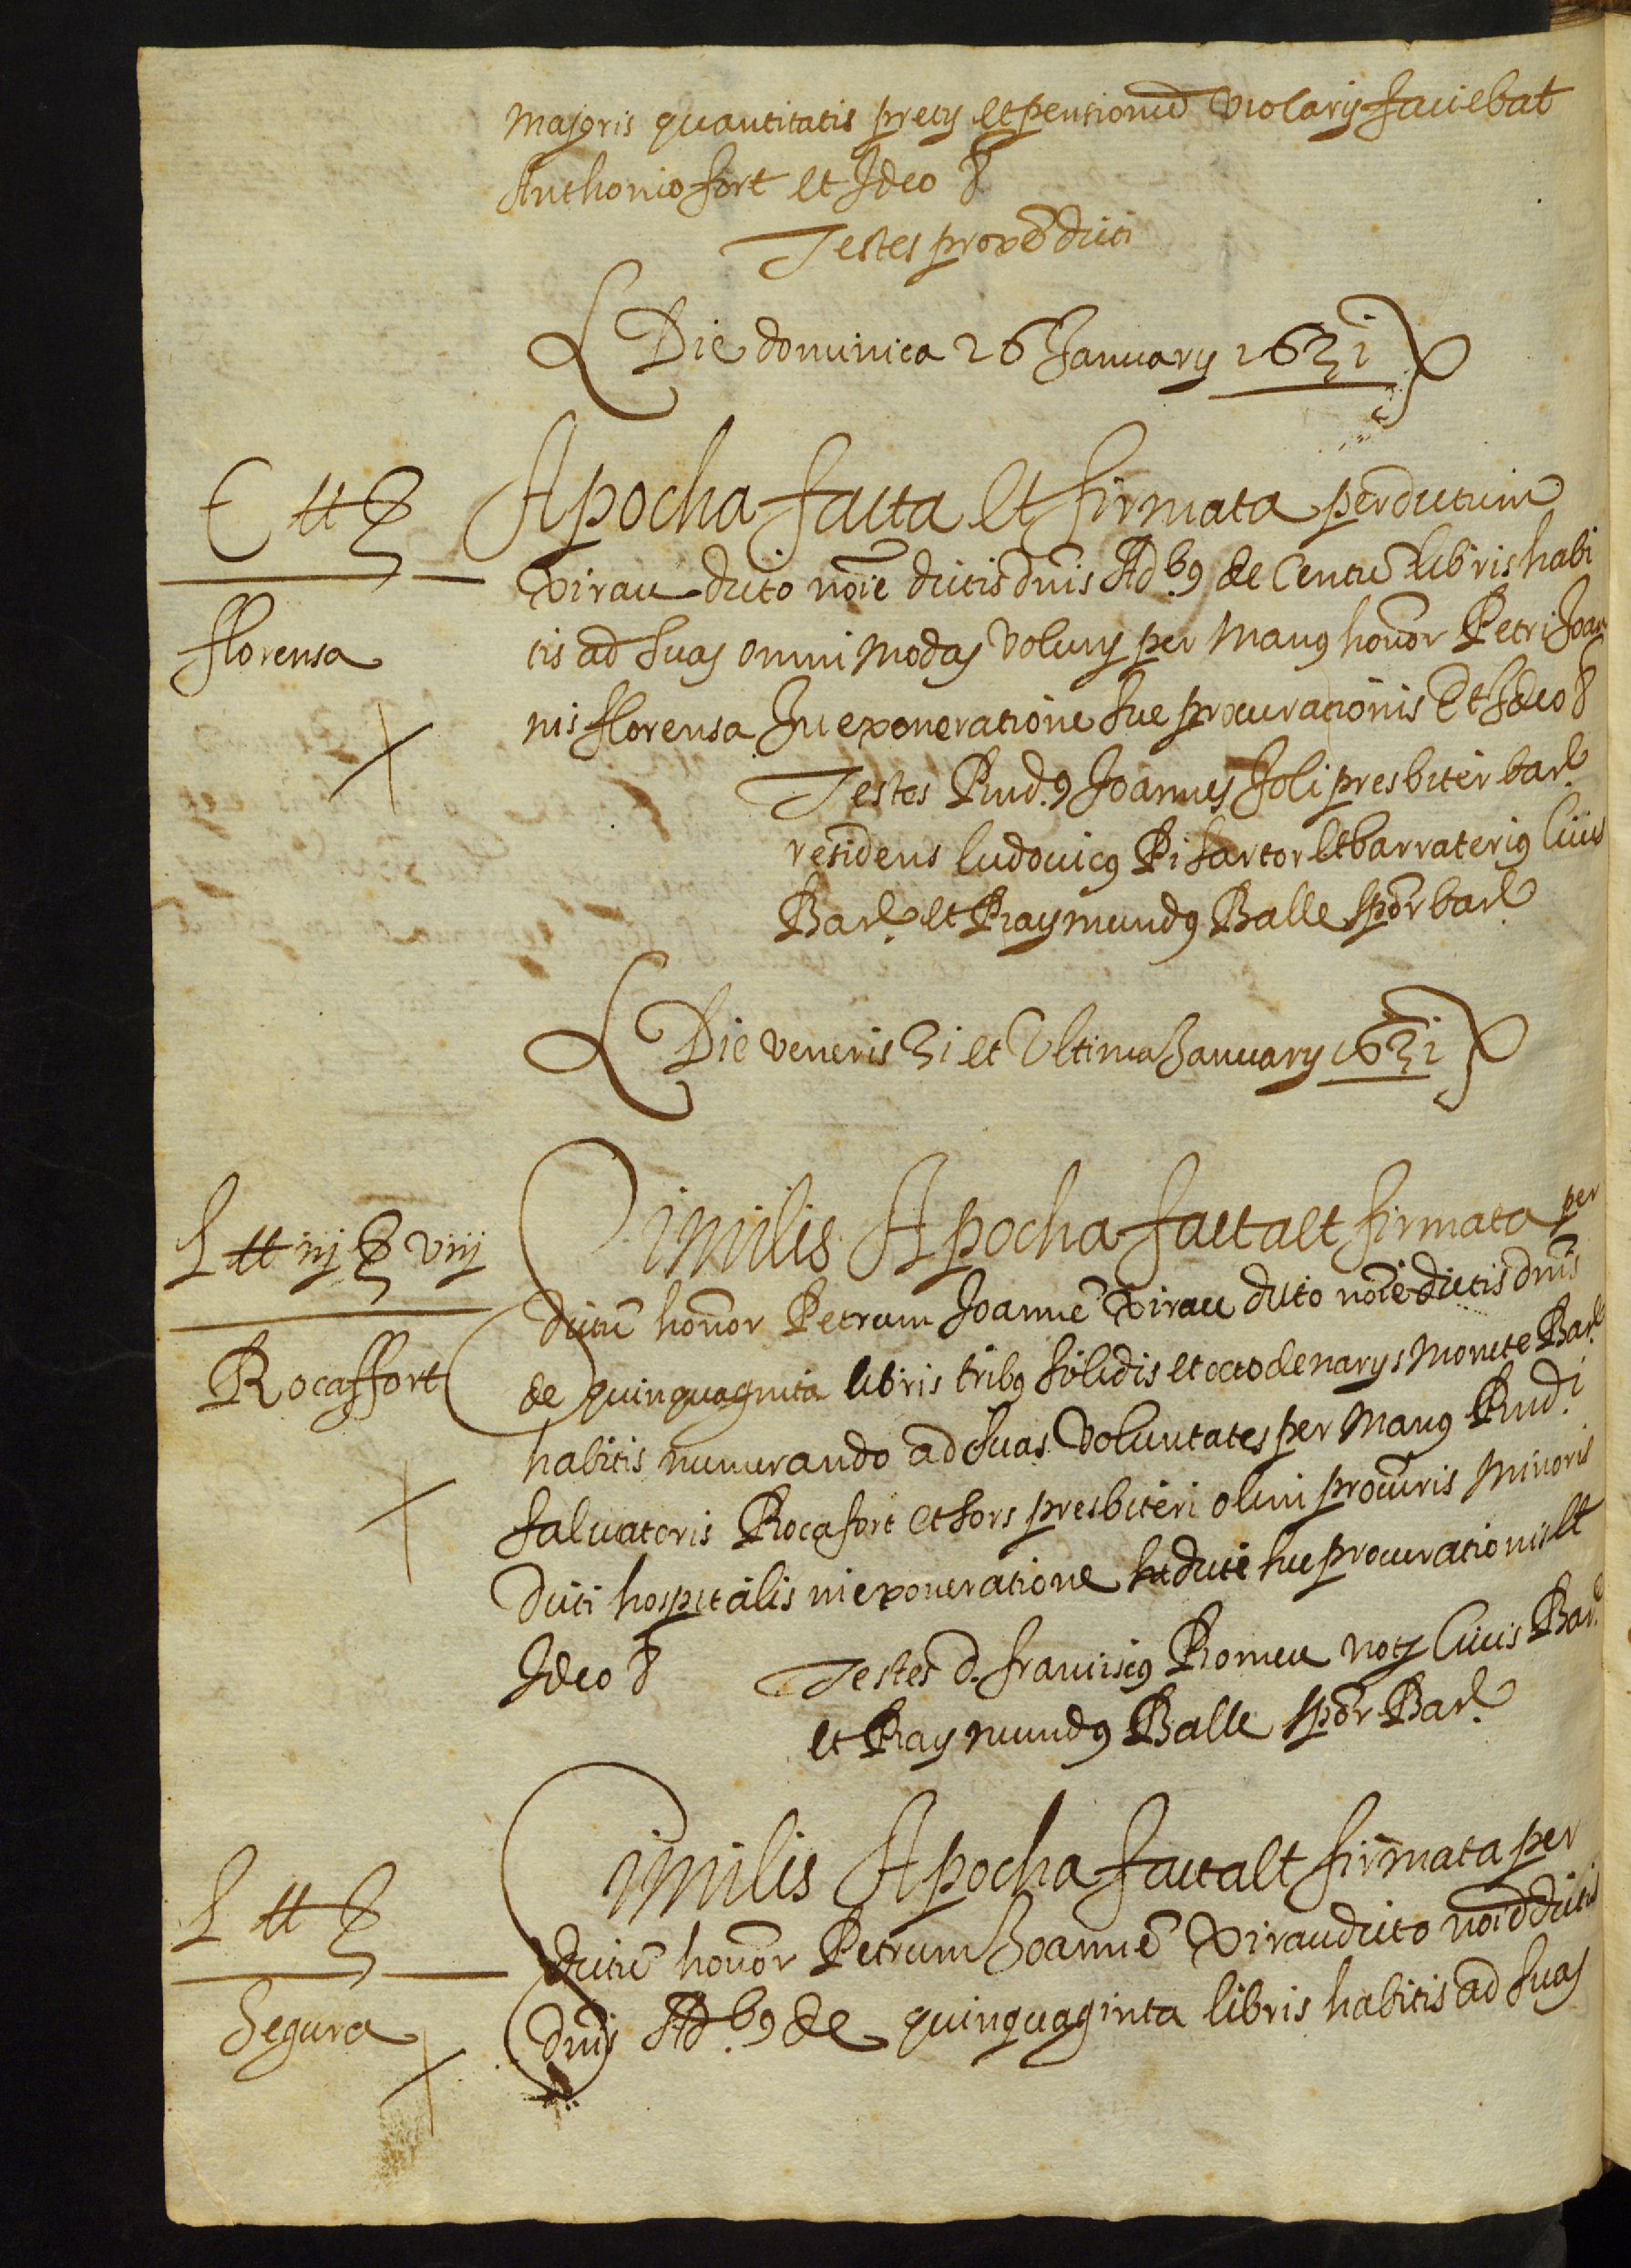 Majoris quantitatis pretij et pentionũ Violarij faciebat
Anthonio fort et Ideo &
Testes proxẽ dicti
Die dominica 26 Januarij 1631
C ₶ ß
florensa
Apocha facta et firmata per dictum
Xirau dicto noĩe dictis dñis Ad.b9 de Centũ libris habi
tis ad suas omnimodas volunͭ per manus honor̃ Petri Joan
nis florensa In exoneratione sue procurationis Et Ideo &
Testes Rnd.9 Joannes Joli presbiter barᷤ
residens ludovicus Pi sartor et barraterius Civis
Bar. et Raymundus Balle sp̃or bar
Die veneris 31 et Ultima Januarij 1631
L ₶ iij ß viij
Rocaffort
Similis Apocha facta et firmata per
dictũ honor̃ Petrum Joannẽ Xirau dicto noĩe dictis dñis
de quinquaginta libris tribus solidis et octo denarijs Monete Bar.
habitis numerando ad suas Voluntates per Manus Rnd.i
salvatoris Rocafort et fors presbiteri olim procuris Minoris
dicti hospitalis in exoneratione dicte sue procurationis et
Ideo & Testes d. franciscus Romeu notͯ Civis Bar.
et Raymundus Balle sp̃or Bar.
L ₶ ß
Segura
Similis Apocha facta et firmata per
dictũ honor̃ Petrum Joannẽ Xirau dicto noĩe dictis
dñis Ad.b9 de quinquaginta libris habitis ad suas